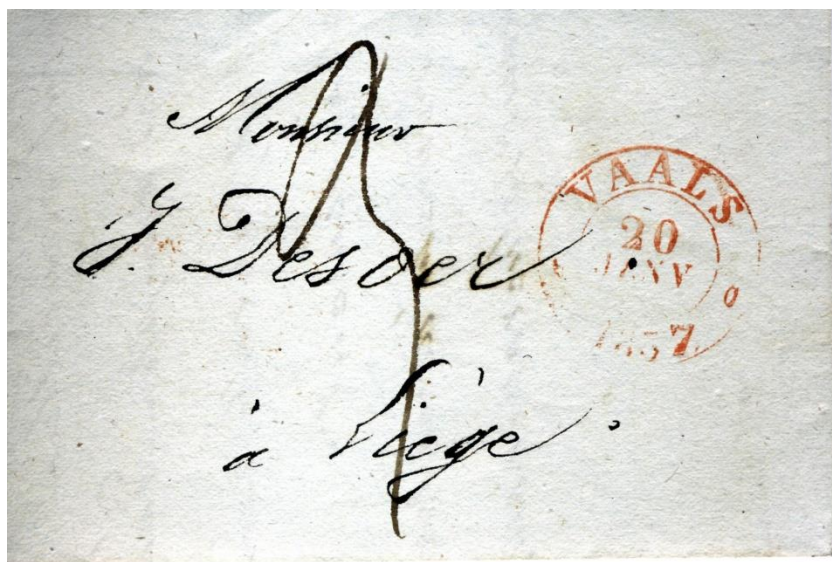 Monsieur
J. Desoer
à Liège
VAALS
20
JANV
1837